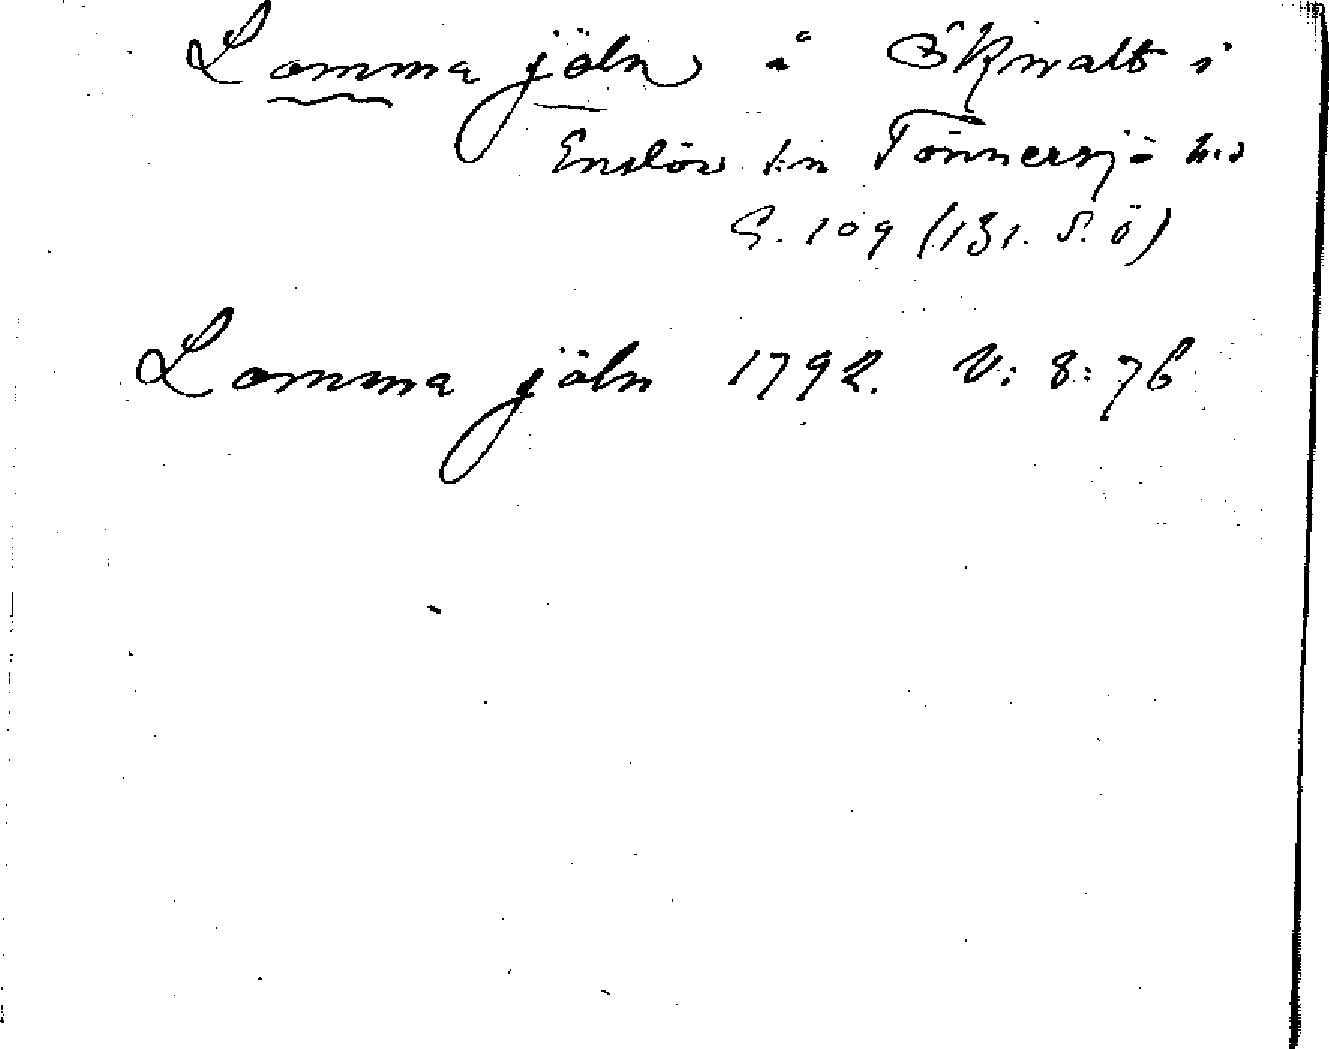 Lamma jäln å Skrvalt i
Enslöv sn Tönnersjö hd
S. 109 (131. S. ö)
Lamma jäln 1792. V: 8: 76